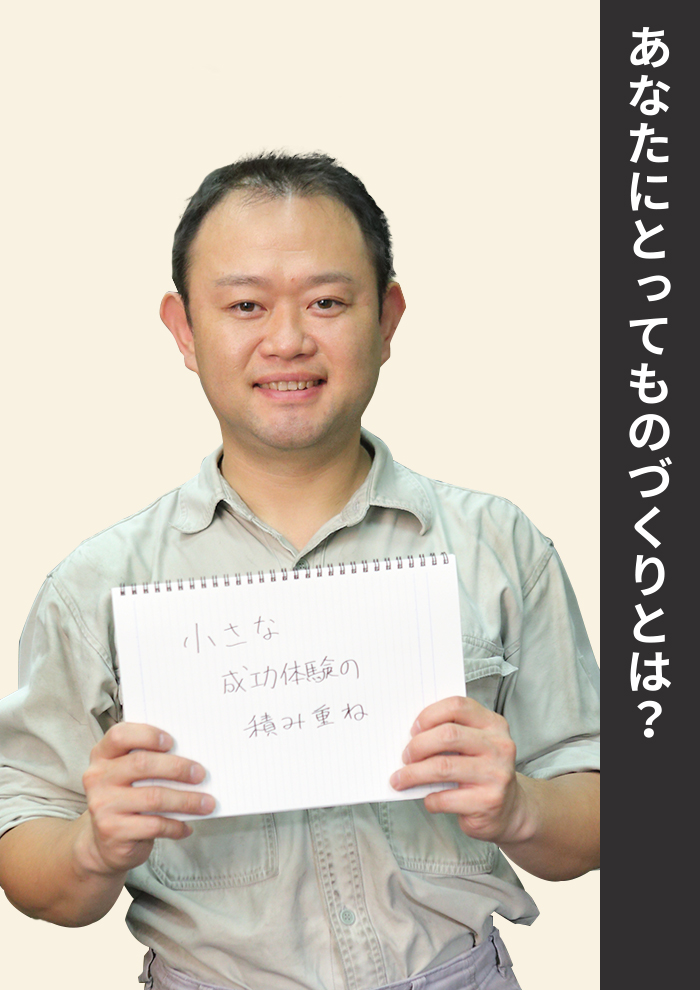 あなたにとってものづくりとは？
小さな
成功体験の
積み重ね